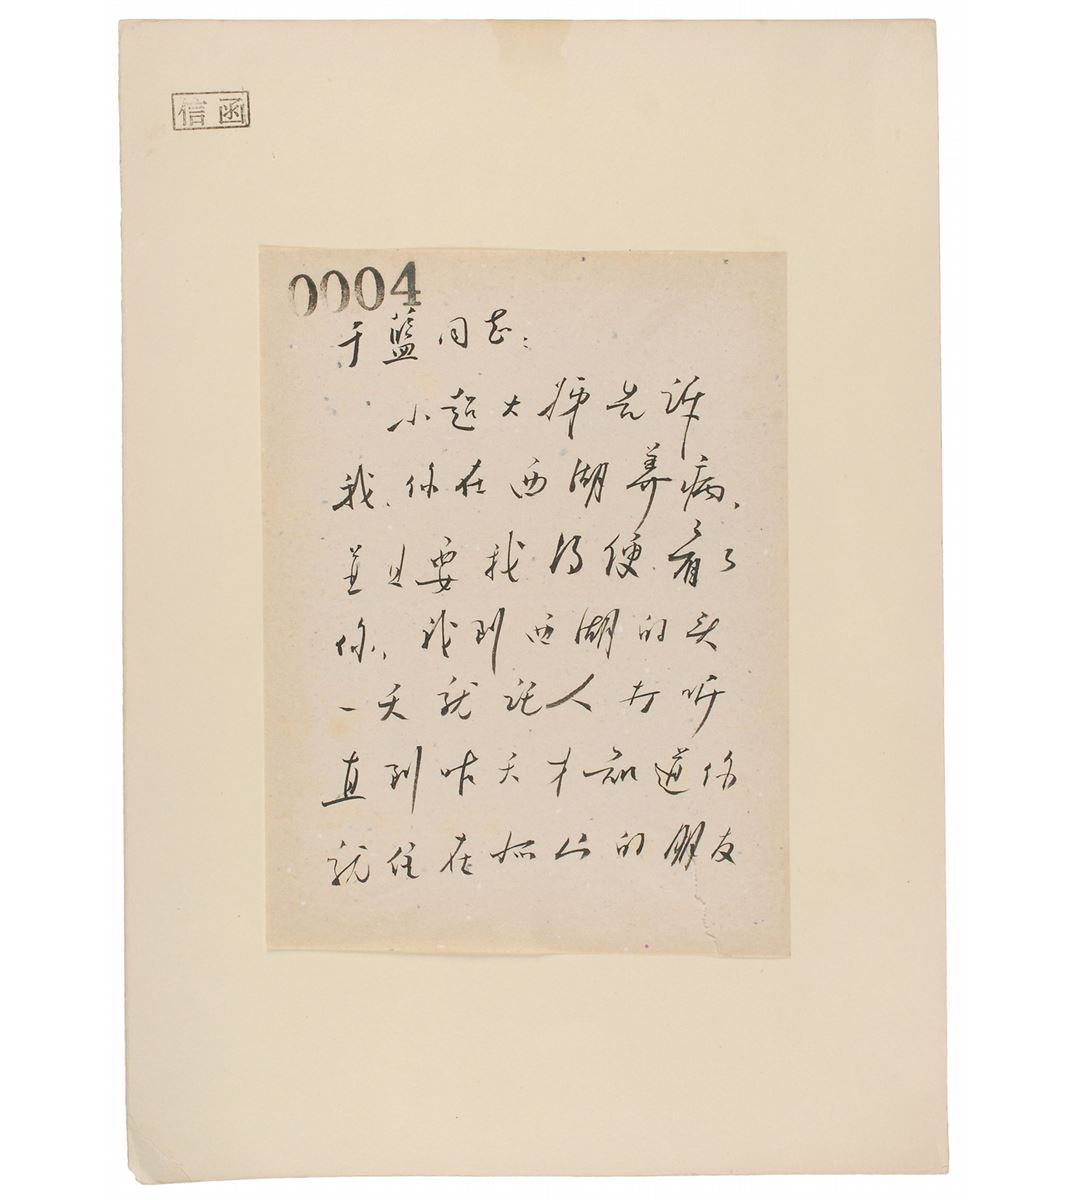 信函
0004
于藍同志：
小超大姊告诉
我，你在西湖养病，
並且要我得便看々
你，我到西湖的头
一天就託人打听
直到昨天才知道你
就住在孤山的朋友